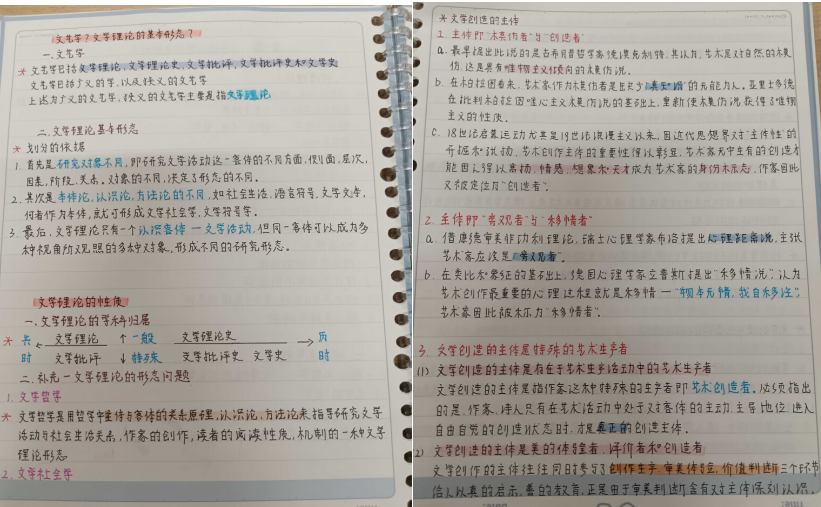 文艺学？文学理论的基本形态？
一.文艺学
* 文艺学包括文学理论、文学理论史、文学批评、文学批评史和文学史
文艺学包括广义的学，以及狭义的文艺学
上述为广义的文艺学，狭义的文艺学主要是指文学理论
二.文学理论基本形态
* 划分的依据
1. 首先是研究对象不同，即研究文学活动这一客体的不同方面，侧面，层次，
因素，阶段，关系。对象的不同，决定了形态的不同。
2. 其次是本体论，认识论，方法论的不同，如社会生活，语言符号，文学文本，
何者作为本体，就可形成文学社会学，文学符号学。
3. 最后，文学理论只有一个认识客体—文学活动，但同一客体可以成为多
种视角所观照的多种对象，形成不同的研究形态。
文学理论的性质
一.文学理论的学科归属
* 共 文学理论 ↑一般 文学理论史 历
时 文学批评 ↓特殊 文学批评史 文学史 时
二.补充—文学理论的形态问题
1. 文学哲学
* 文学哲学是用哲学中主体与客体的关系原理，认识论，方法论来指导研究文学
活动与社会生活关系，作家的创作，读者的阅读性质，机制的一种文学
理论形态
2. 文学社会学
* 文学创造的主体
1. 主体即“模仿者”与“创造者”
a. 最早提出此说的是古希腊哲学家德谟克利特，其认为，艺术是对自然的模
仿，这是具有唯物主义倾向的模仿说。
b. 在柏拉图看来，艺术家作为模仿者是缺少“真知”的无能力人。亚里士多德
在批判柏拉图唯心主义模仿说的基础上，重新使模仿说获得了唯物
主义的性质。
c. 18世纪启蒙运动尤其是19世纪浪漫主义以来，因近代思想界对“主体性”的
开掘和张扬，艺术创作主体的重要性得以彰显，艺术家先乎生有的创造才
能因认得以高扬，情感，想象和天才成为艺术家的身份标志，作家因此
又被定位为“创造者”。
2. 主体即“旁观者”与“移情者”
a. 借康德审美非功利理论，瑞士心理学家布洛提出心理距离说，主张
艺术家应该是“旁观者”。
b. 在类比和象征的基础上，德国心理学家立普斯提出“移情说”，认为
艺术创作最重要的心理过程就是移情—“物本无情，我自移注”，
艺术家因此被称为“移情者”。
3. 文学创造的主体是特殊的艺术生产者
(1) 文学创造的主体是存在于艺术生产活动中的艺术生产者
文学创造的主体是指作家这种特殊的生产者即艺术创造者。必须指出
的是，作家，诗人只有在艺术活动中处于对客体的主动，主导地位，进入
自由自觉的创造状态时，才是真正的创造主体。
2) 文学创造的主体是美的体验者，评价者和创造者
文学创作的主体往往同时参与了创作生产，审美体验，价值判断三个环节
给人以真的启示，善的教育，正是由于审美判断含有对主体深刻认识。